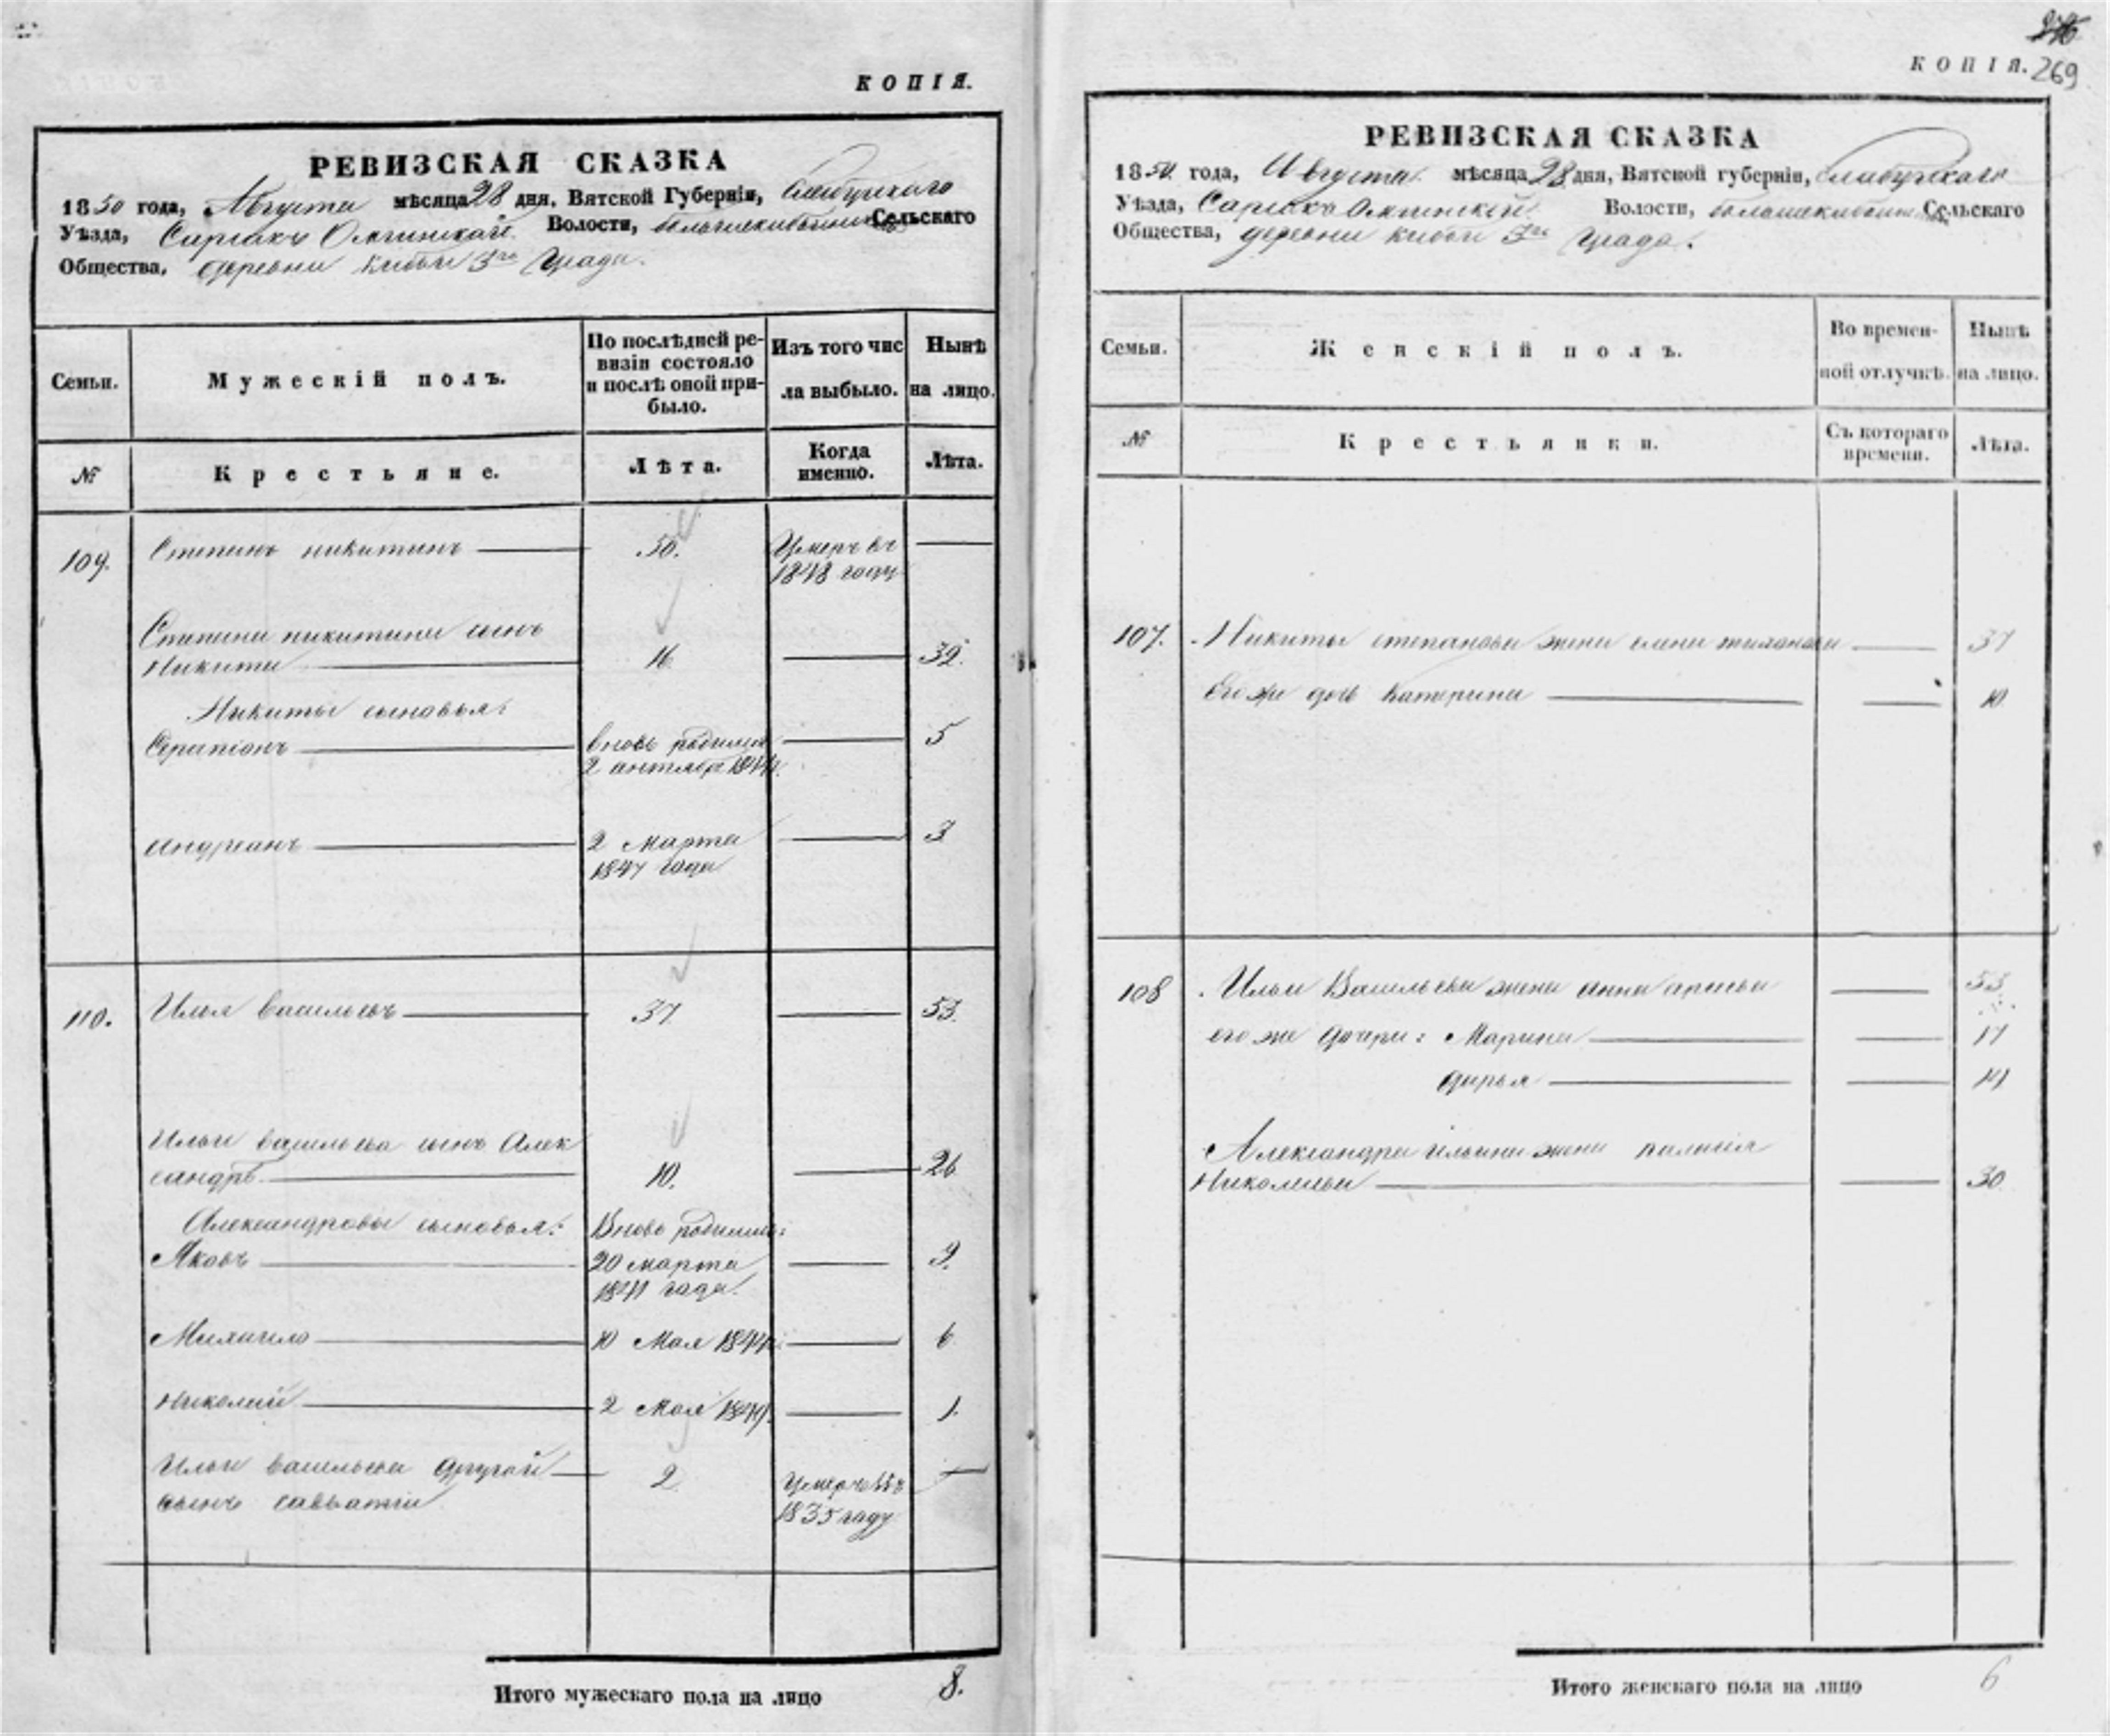 КОПІЯ.
РЕВИЗСКАЯ СКАЗКА
1850 года, Августа мѣсяца 28 дня, Вятской Губерніи, Елабугскаго
Уѣзда, Волости, Сельскаго
Общества, деревни 3го града.
Семьи.
Мужескій полъ.
По послѣдней ре-
визіи состояло
и послѣ оной при-
было.
Изъ того чис
ла выбыло.
Нынѣ
на лицо.
№
Крестьяне.
Лѣта.
Когда
именно.
Лѣта.
109.
Степанъ никитинъ
50.
Умеръ въ
1848 году
Степана никитина сынъ
Никита
16
32.
Никиты сыновья:
Серапіонъ
вновь родился
2 1844
5
андреанъ
2 марта
1847 года
3
110.
Илья васильевъ
37
53.
Ильи васильева сынъ Алек
сандръ
10.
26
Александровы сыновья:
Вновь родились:
Яковъ
20 марта
1841 года
9.
Михаило
10 Мая 1844
6
николай
2 Мая 1849.
1.
Ильи васильева другой
сынъ савватии
2
Умеръ въ
1835 году
Итого мужескаго пола на лицо 8.
КОПІЯ. 269
РЕВИЗСКАЯ СКАЗКА
1850 года, Августа мѣсяца 28 дня, Вятской губерніи, Елабугскаго
Уѣзда, Волости, Сельскаго
Общества, деревни 3го града.
Семьи.
Женскій полъ.
Во времен-
ной отлучкѣ.
Нынѣ
на лицо.
№
Крестьянки.
Съ котораго
времени.
Лѣта.
107.
Никиты степанова жена елена
37
Его же дочь Катерина
10
108
Ильи Васильева жена анна
53
его же дочери: Марина
17
дарья
14
Александра ильина жена
Николаева
30
Итого женскаго пола на лицо 6